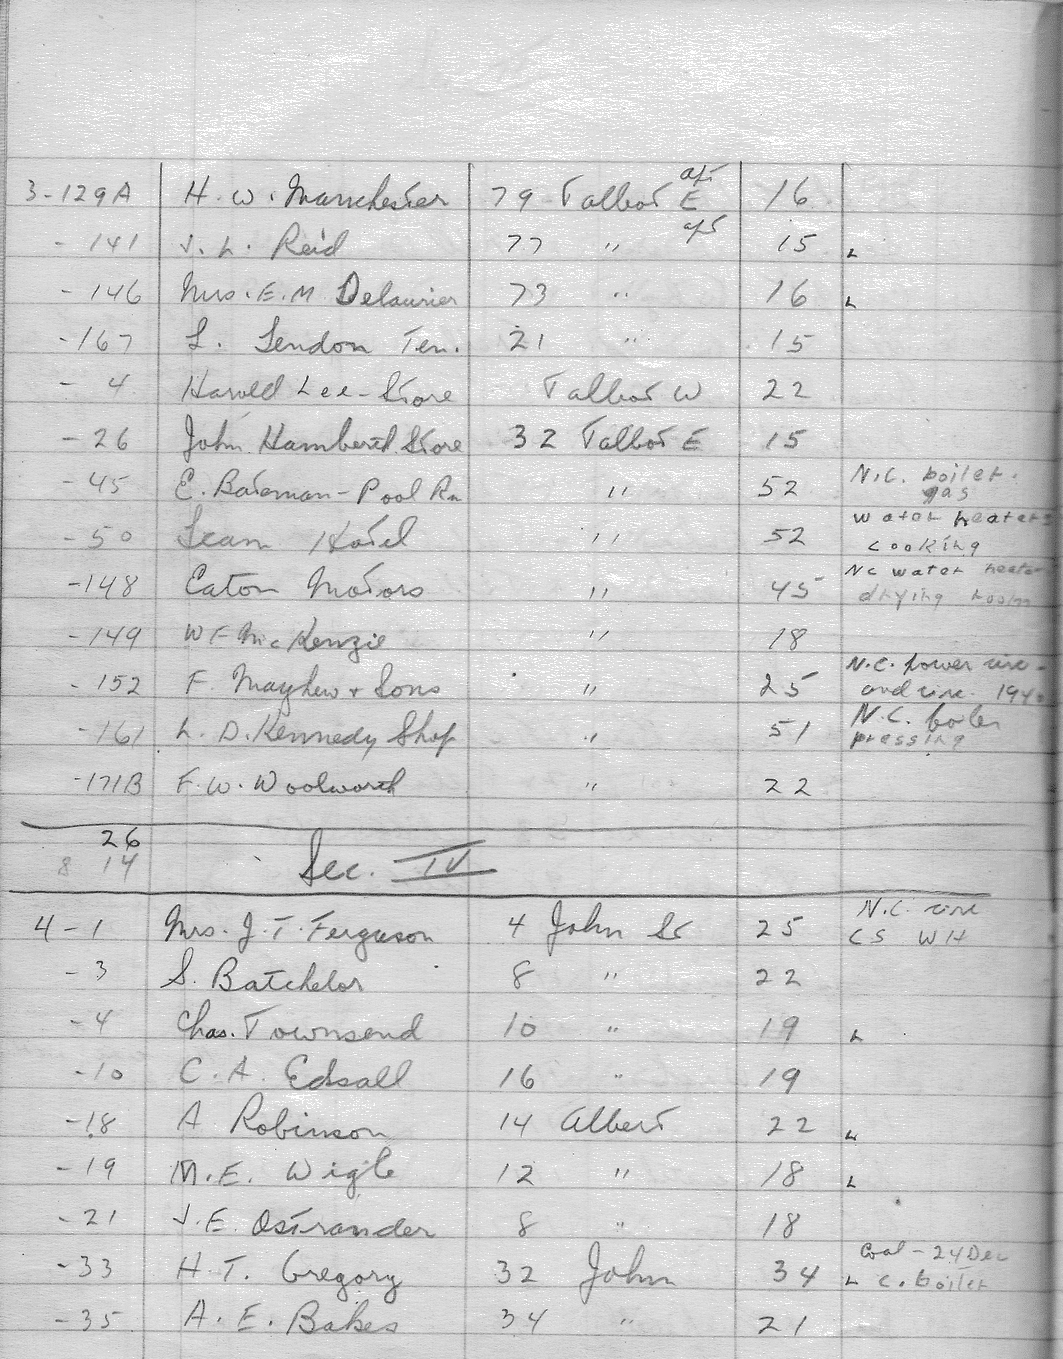 3-129A H. W. Manchester 79 Talbot E apt 16
-141 J. L. Reid 77 " apt 15 L
-146 Mrs. E. M Delaurier 73 " 16 L
-167 L. Lendon Ten. 21 " 15
-4 Harold Lee-Store Talbot W 22
-26 John Hamberth Store 32 Talbot E 15
-45 E. Bateman-Pool Rm " 52 N.C. boiler. gas
-50 Leam Hotel " 52 water heaters cooking
-148 Eaton Motors " 45 NC water heater drying room
-149 W F McKenzie " 18
-152 F. Mayhew + Sons " 25 N.C. power cire - and circ. 194
-161 L. D. Kennedy Shop " 51 N.C. boiler pressing
-171B F. W. Woolworth " 22
26
8 14 Sec. IV
4-1 Mrs. J. T. Ferguson 4 John St 25 N.C. circ CS WH
-3 S. Batchelor 8 " 22
-4 Chas. Townsend 10 " 19 L
-10 C. A. Edsall 16 " 19
-18 A Robinson 14 Albert 22 L
-19 M. E. Wigle 12 " 18 L
-21 J. E. Ostrander 8 " 18
-33 H. T. Gregory 32 John 34 L Coal - 24 Dec C. boiler
-35 A. E. Bakes 34 " 21